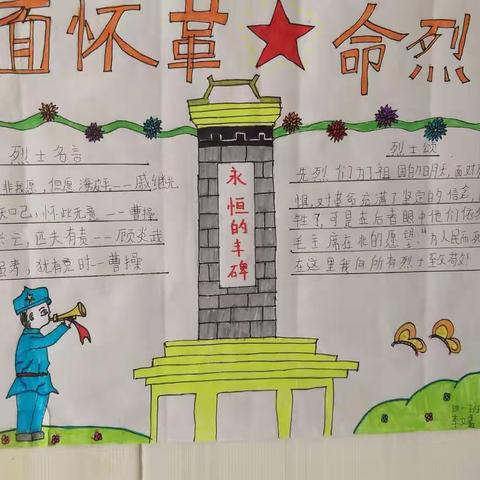 面怀革★命烈
烈士名言
非我愿，但愿海波平——戚继光
口己，怀此无竟——曹操
云，匹夫有责——顾炎武
寿，犹有竟时——曹操
永恒的丰碑
烈士颂
先烈们为了祖国的明天，面对
惧，对革命充满了坚定的信念，
牲了，可是在后者眼中他们依
毛主席在北的愿望“为人民而死
在这里我向所有烈士至
四一班
李文